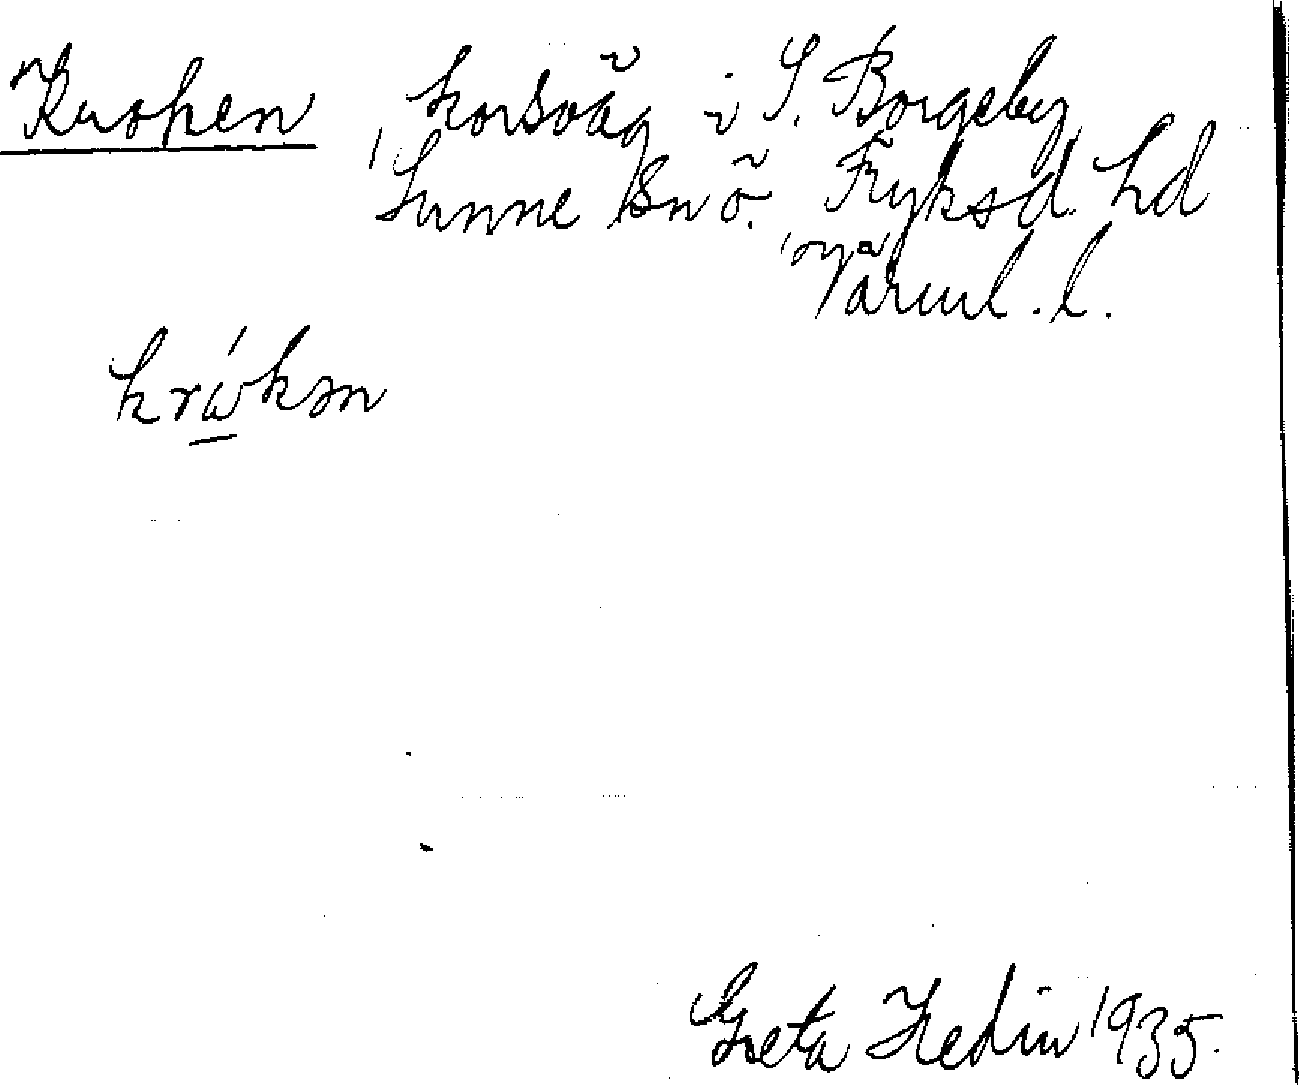 Kroken, korsväg i S. Borgeby
Sunne sn Ö. Fryksd. hd
Värml. l.
krώkən
Greta Hedin 1935.